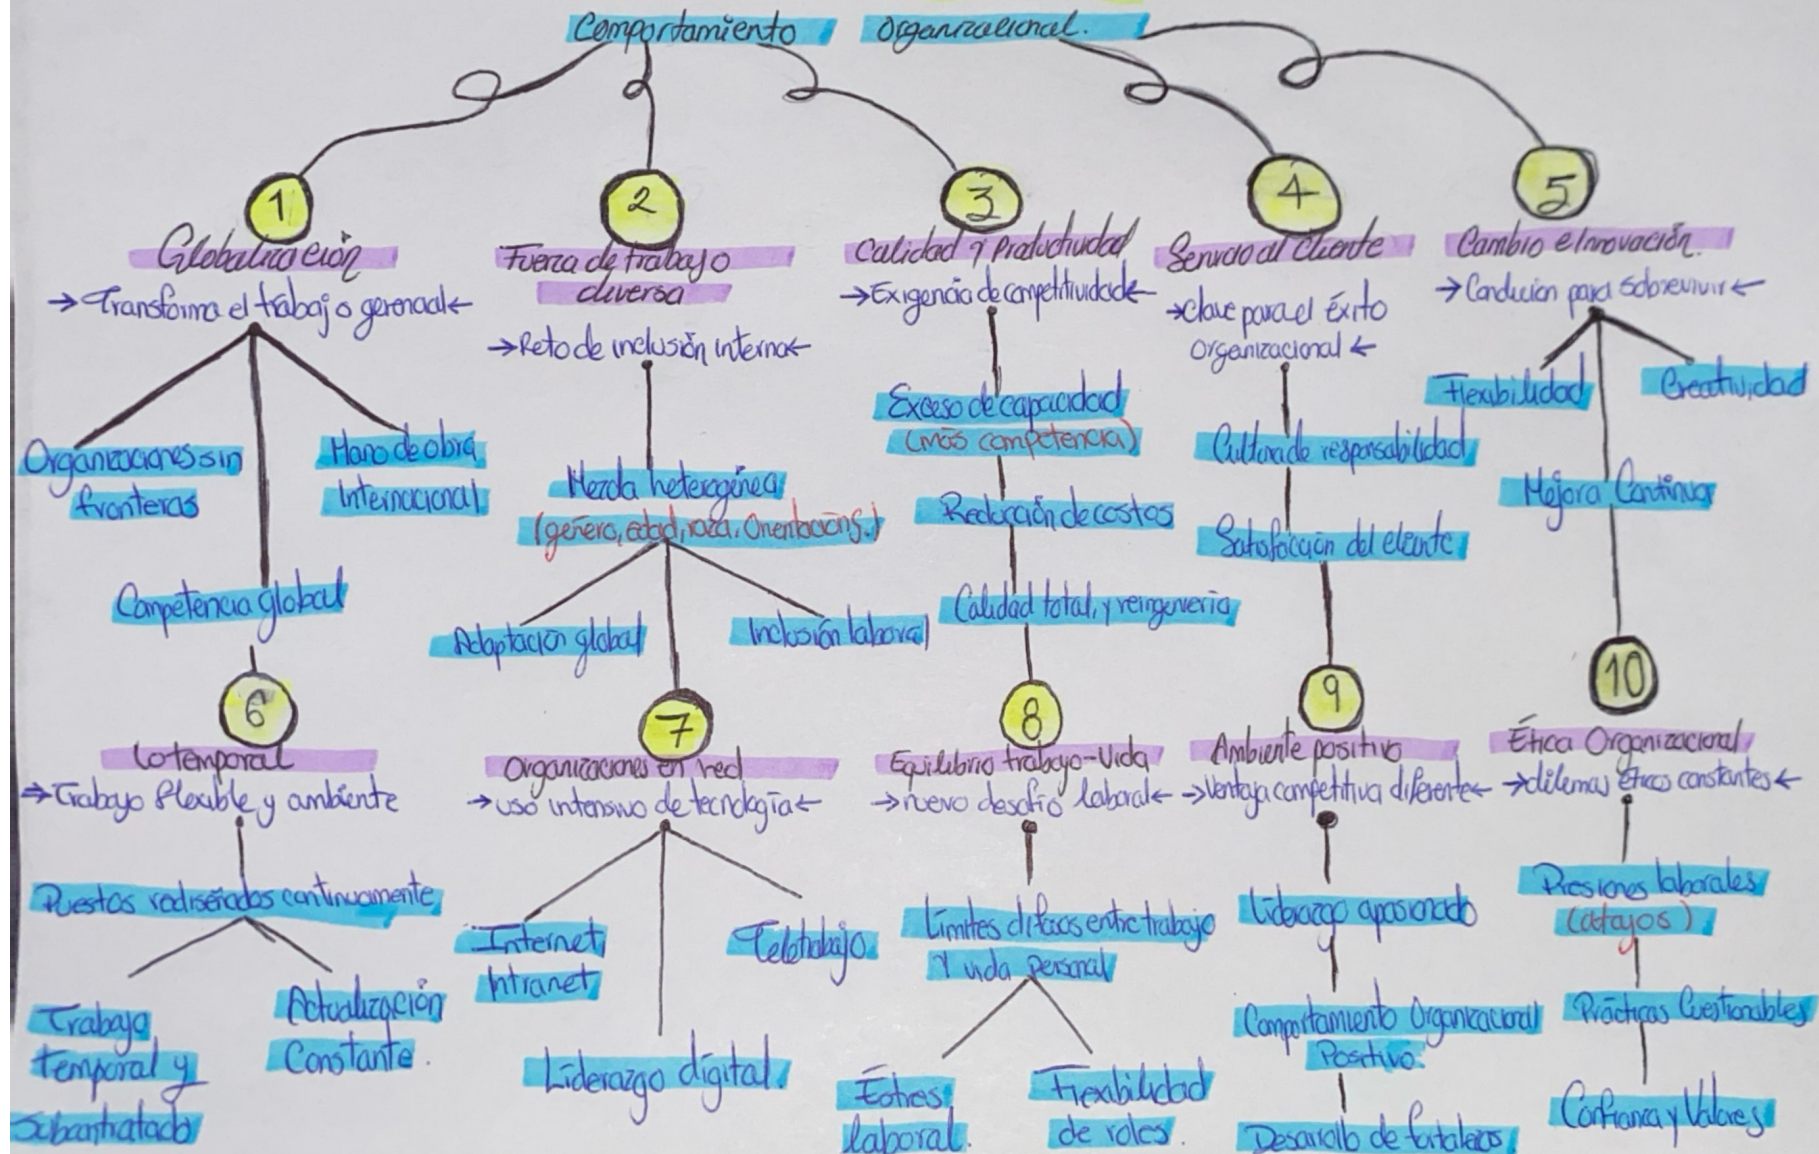 Comportamiento Organizacional.
1
Globalización
→Transforma el trabajo gerencial←
Organizaciones sin
fronteras
Mano de obra
Internacional
Competencia global
2
Fuerza de trabajo
diversa
→Reto de inclusión interna←
Mezcla heterogénea
(género, edad, raza, Orientación S.)
Adaptación global
Inclusión laboral
3
Calidad y Productividad
→Exigencia de competitividad←
Exceso de capacidad
(más competencia)
Reducción de costos
Calidad total, y reingenieria
4
Servicio al Cliente
→Clave para el éxito
Organizacional←
Cultura de responsabilidad
Satisfacción del cliente
5
Cambio e Innovación.
→Condición para sobrevivir←
Flexibilidad
Creatividad
Mejora Continua
6
Lo temporal
→Trabajo flexible y ambiente
Puestos rediseñados continuamente
Trabajo
temporal y
Subcontratado
Actualización
Constante.
7
Organizaciones en red
→uso intensivo de tecnología←
Internet,
Intranet
Teletrabajo.
Liderazgo digital.
8
Equilibrio trabajo-Vida
→nuevo desafío laboral←
Límites difusos entre trabajo
Y vida personal
Estres
laboral.
Flexibilidad
de roles.
9
Ambiente positivo
→Ventaja competitiva diferente←
Liderazgo apasionado
Comportamiento Organizacional
Positivo.
Desarrollo de fortalezas
10
Ética Organizacional
→dilemas éticos constantes←
Presiones laborales
(atajos)
Prácticas Cuestionables
Confianza y Valores